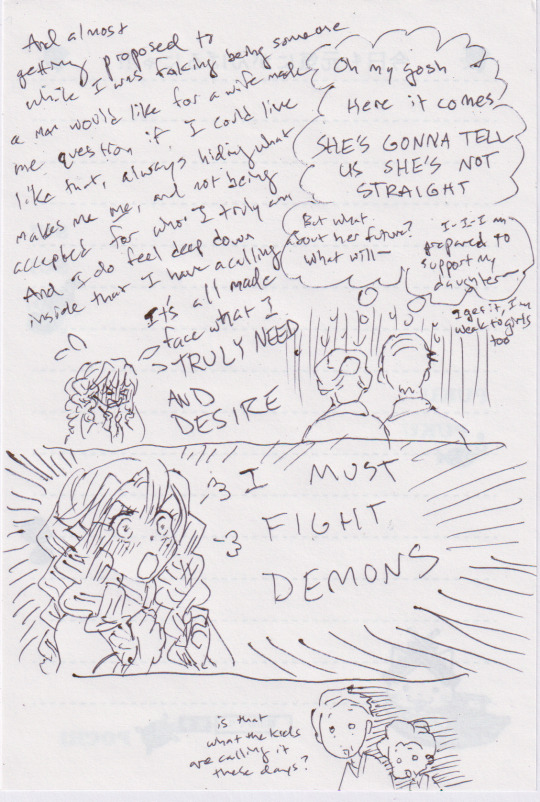 And almost
getting proposed to
while I was faking being someone
a man would like for a wife made
me question if I could live
like that, always hiding what
makes me me, and not being
accepted for who I truly am
And I do feel deep down
inside that I have a calling
It's all made
face what I
TRULY NEED
AND
DESIRE
Oh my gosh
Here it comes
SHE'S GONNA TELL
US SHE'S NOT
STRAIGHT
But what
about her future?
What will—
I-I-I am
prepared to
support my
daughter—
I get it, I'm
weak to girls
too
I MUST
FIGHT
DEMONS
is that
what the kids
are calling it
these days?